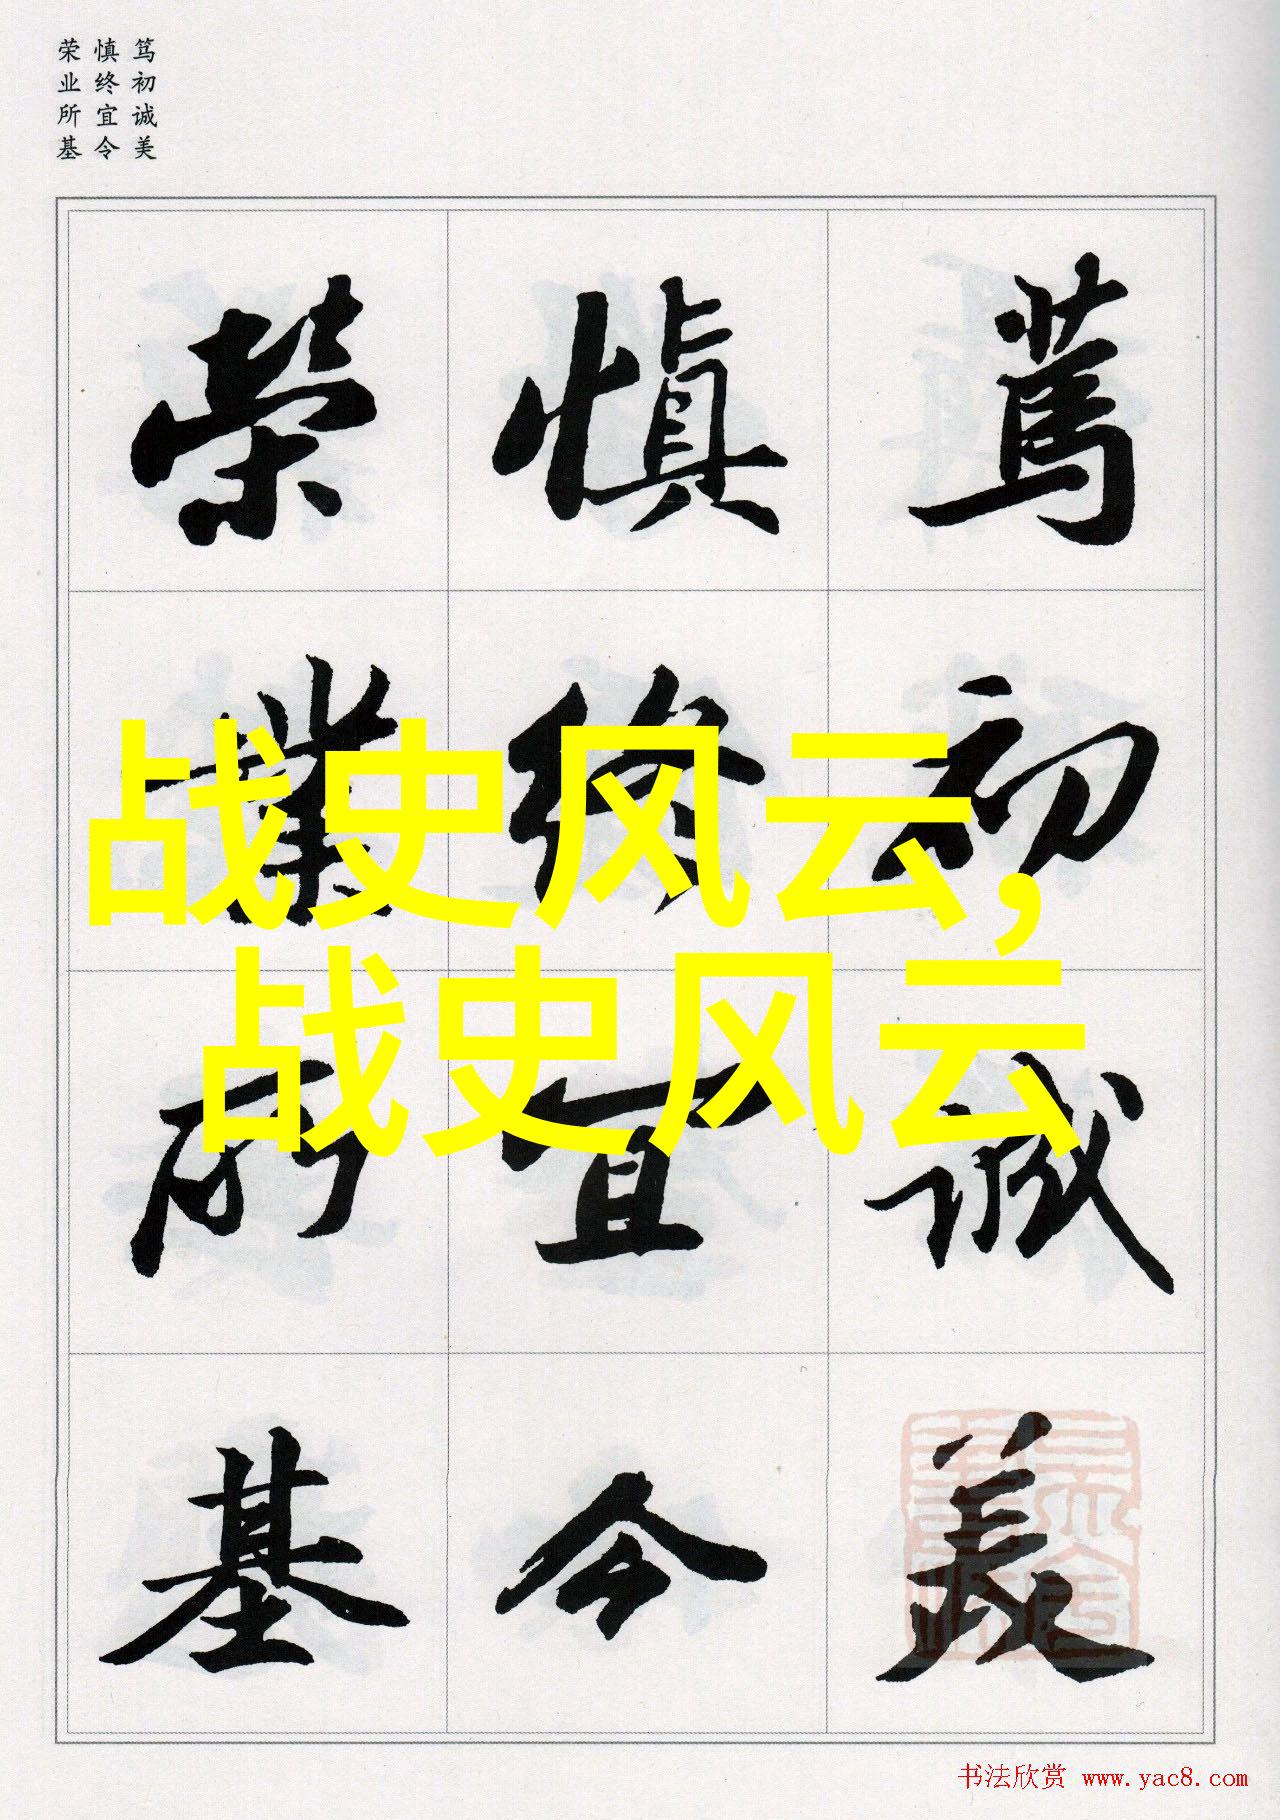 笃初诚美
慎终宜令
荣业所基
篤初誠美
慎終宜令
榮業所基
战史风云，
战史风云
书法欣赏 www.yac8.com